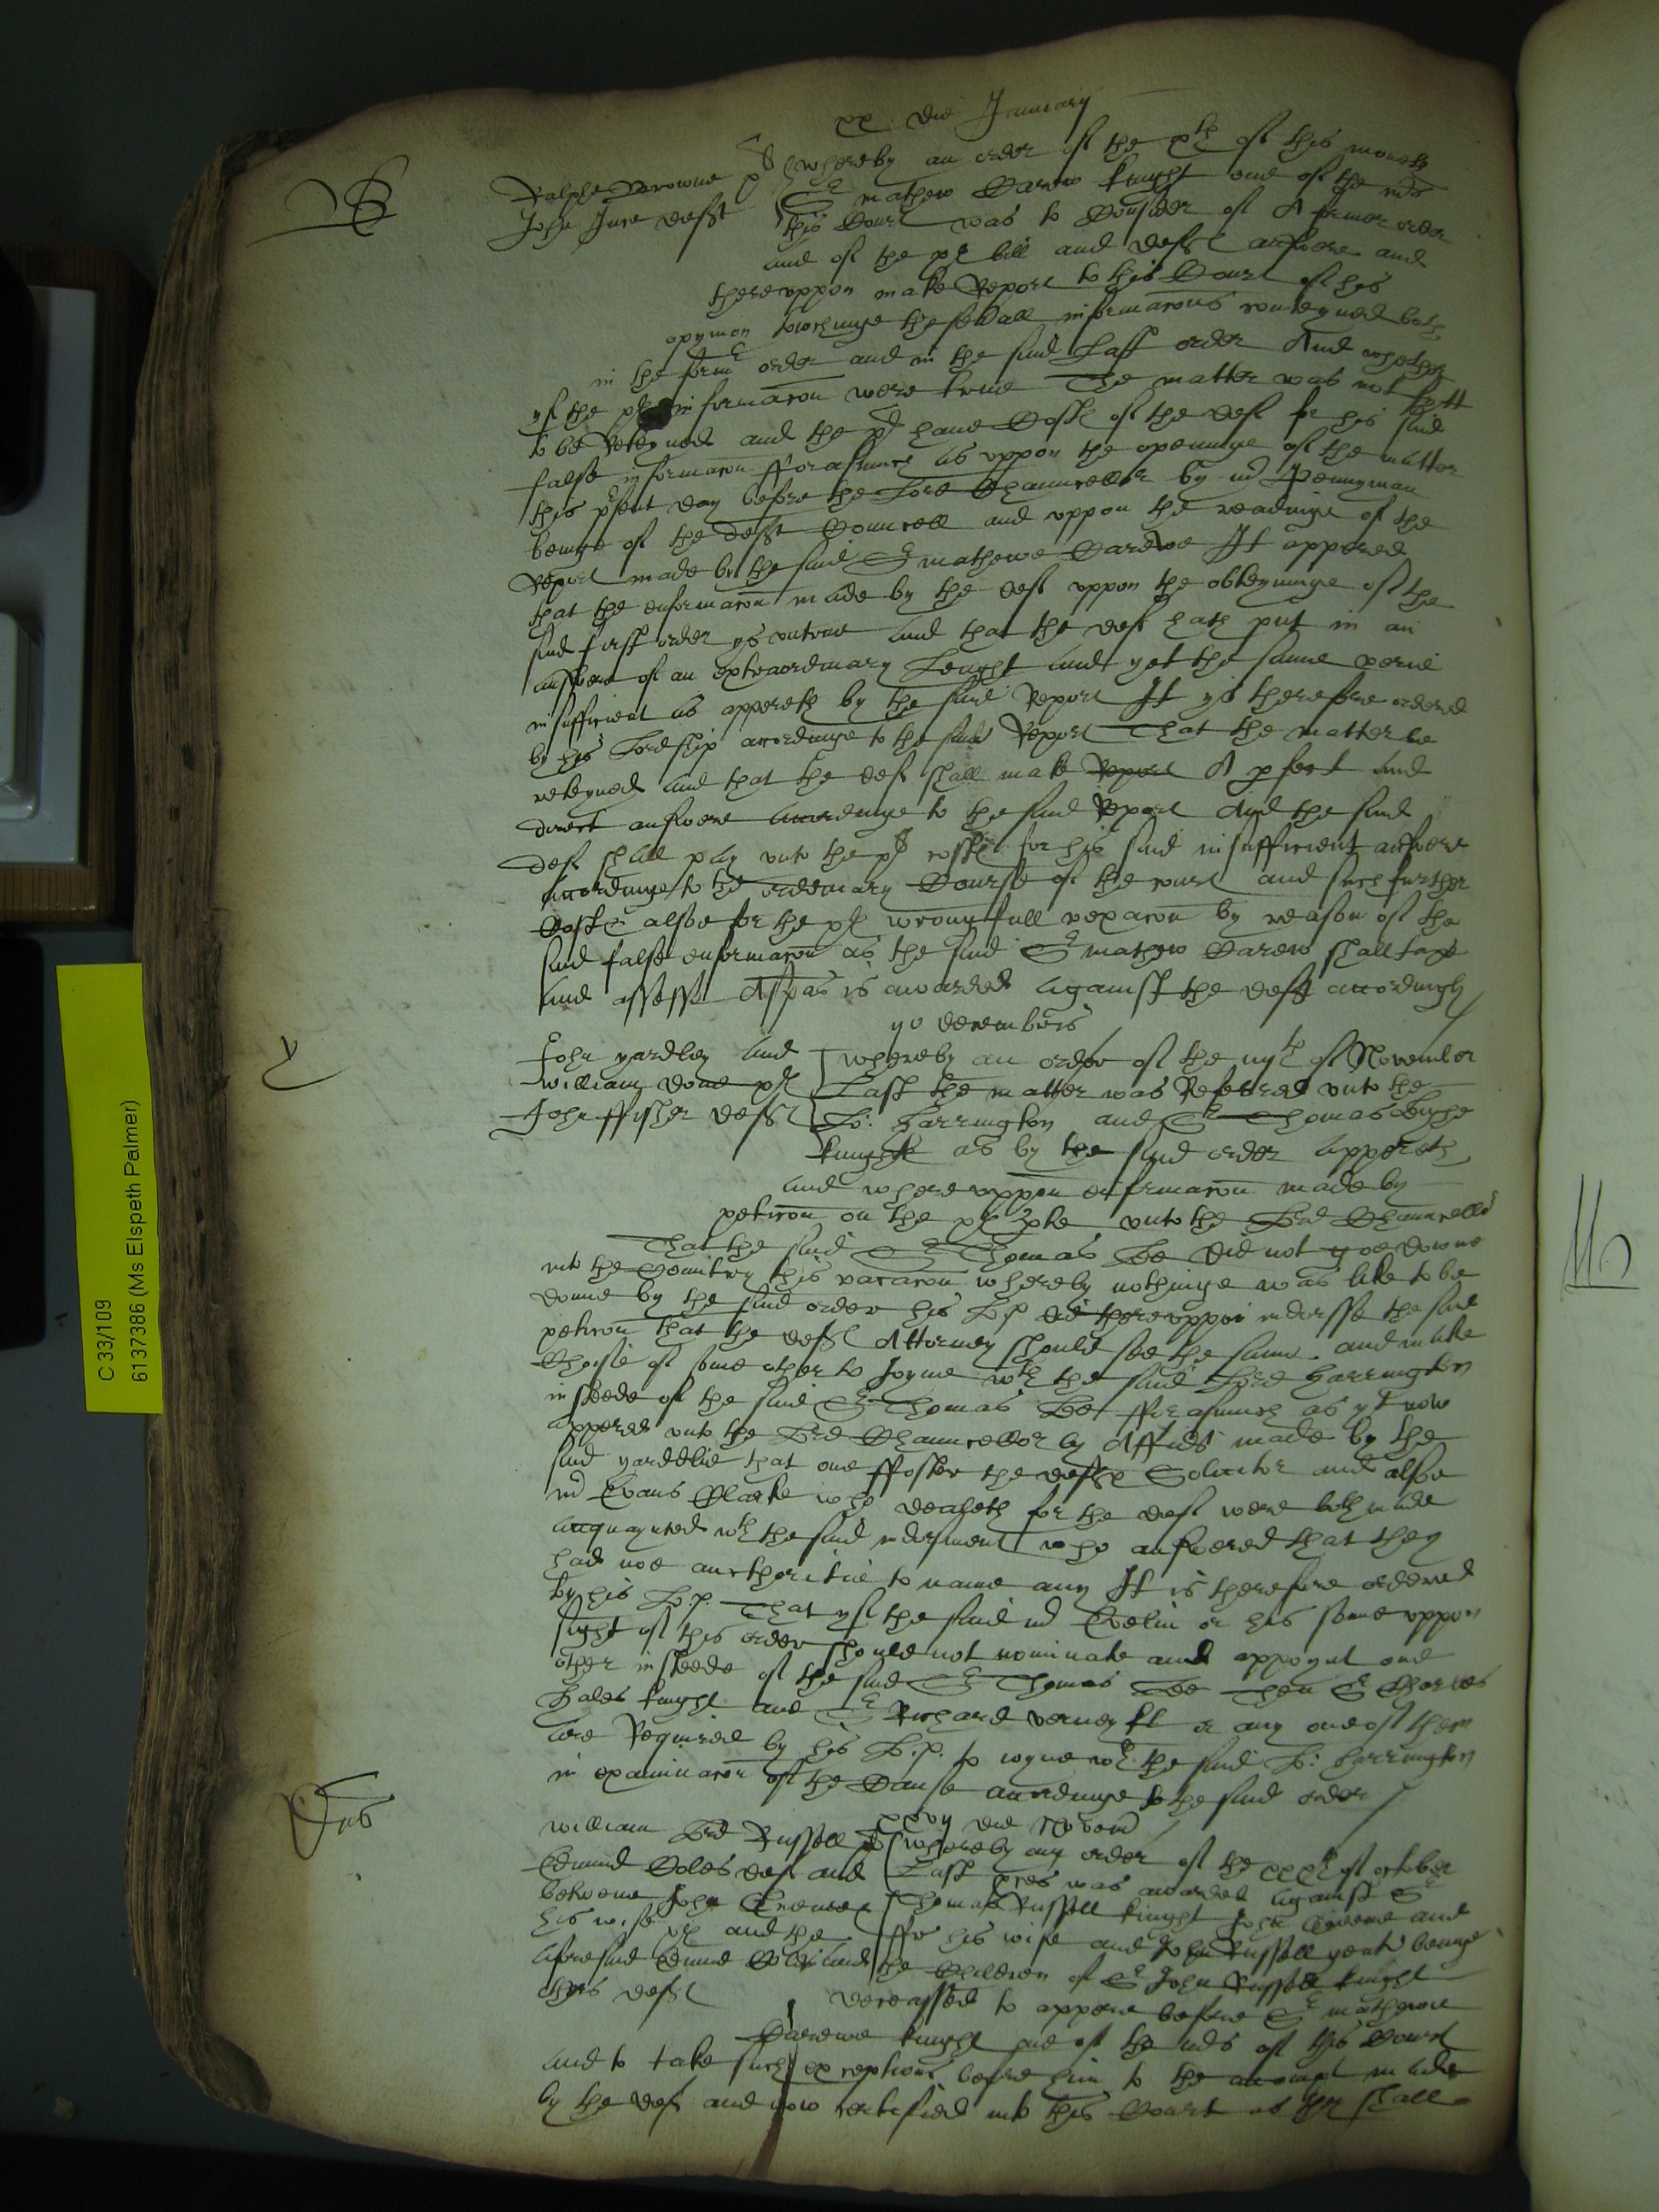 xx die January
Ralphe Browne pl
John June deft
whereby an order of the xth of this moneth
Sr mathew Carew knight one of the mrs
this Court was to Consider of A former order
and of the pl bill and deft answere and
thereuppon make Report to this Court of his
opynion towchinge the sevall informacons conteyned both
in the formr order and in the said Last order And whether
yf the pl informacon were true The matter was not fytt
to be Reteyned and the pl have Costs of the deft for his said
false informacon fforasmuch as uppon the openinge of the matter
this psent day before the Lord Chauncellor by mr Pennyman
beinge of the deft Councell and uppon the readinge of the
Report made by the said Sr mathewe Carewe It appered
that the enformacon made by the deft uppon the obteyninge of the
said first order ys untrue and that the deft hath put in an
answere of an extraordinary Lenght and yet the same verie
insufficient as appereth by the said Report It ys therefore ordered
by his Lordship accordinge to the said Report That the matter be
reteyned and that the deft shall make Report A pfect and
direct answere accordinge to the said Report And the said
deft shall pay unto the pl costs for his said insufficient answere
accordinge to the ordenary Course of the court and such further
Costs alsoe for the pl wrongfull vexacon by reason of the
said false enformacon as the said Sr mathew Carew shall taxe
and assesse A spas is awarded against the deft accordingly
yo decembris
John yardley and
william done pl
John ffisher deft
whereby an order of the iiijth of November
Last the matter was Referred unto the
Lo: Harrington and Sr Thomas Leighe
knight as by the said order appereth
and whereuppon enformacon made by
peticon on the pl pte unto the Lord Chauncellor
That the said Sr Thomas Lee did not goe downe
into the Countrey this vacacon whereby nothinge was like to be
donne by the said order his Lp did thereuppon indorsse the said
peticon that the deft Attorney should see the same and make
Choise of some other to Joyne wth the said Lord Harrington
in steede of the said Sr Thomas Lee fforasmuch as yt now
appered unto the Lord Chauncellor by Affid made by the
said yardelie that one ffoster the deft Solicitor and alsoe
mr Evans Clarke who dealeth for the deft were both made
acquaynted wth the said indorsment who answered that they
had noe aucthoritie to name any It is therefore ordered
by his Lp. That yf the said mr Evelin or his sonne uppon
sight of this order should not nominate and appoynt one
other in steede of the said Sr Thomas Lee Then Sr Charles
Hales knight and Sr Richard verney kt or any one of them
are Required by his Lp. to ioyne wth the said Lo: Harrington
in examinacon of the Cause accordinge to the said order
xxvij die Novem
william Lord Russell pl
Edmund Coles deft and
betwene John
his wife pl and the
aforesaid Edmund Coles and
others deft
whereby an order of the xxxth of october
Last pces was awarded against Sr
Thomas Russell knight John and
his wife and John Russell gent beinge
the Children of Sr John Russell knight
deceassed to appere before Sr mathewe
Carewe knight one of the mrs of this Court
and to take such exceptions before him to the accompt made
by the deft and now certefied into this Court as they shall
B
Y
C 33/109
6137386 (Ms Elspeth Palmer)